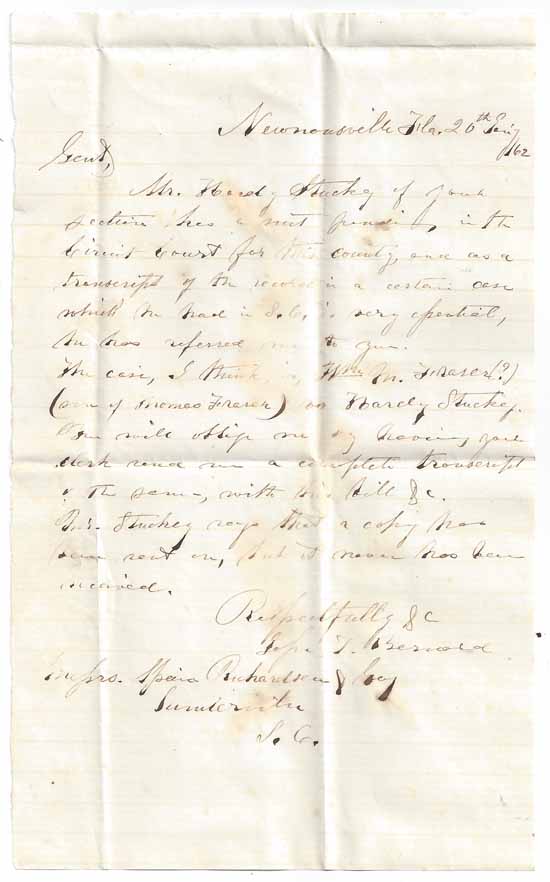 Newnansville Fla. 20th
/62
Gent,
Mr. Hardy Stuckey of your
section has a suit pending, in the
Circuit Court for this county, and as a
transcript of the record in a certain case
which he had in S.C. is very essential,
he has referred me to you.
The case, I think, is, Wm M. Fraser (?)
(son of Thomas Fraser) vs Hardy Stuckey.
You will oblige me by having your
clerk send me a complete transcript
of the same, with his bill &c.
Mr. Stuckey says that a copy has
been sent on, but it never has been
received.
Respectfully &c
T. Bernard
Messrs. Spain Richardson &
Sumterville
S. C.